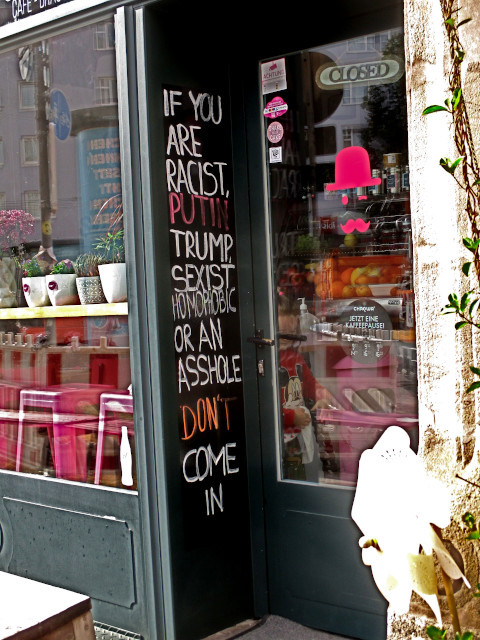 CAFE - BRA
IF YOU
ARE
RACIST,
PUTIN
TRUMP,
SEXIST
HOMOPHOBIC
OR AN
ASSHOLE
DON'T
COME
IN
CLOSED
ACHTUNG
JETZT EINE
KAFFEEPAUSE!